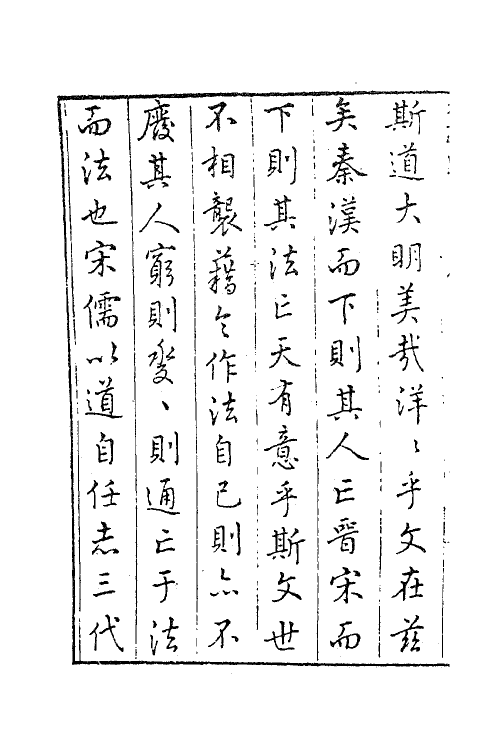 斯道大明美哉洋〻乎文在茲
矣秦漢而下則其人亡晉宋而
下則其法亡天有意乎斯文世
不相襲藉令作法自己則亦不
廢其人窮則変〻則通亡于法
而法也宋儒以道自任志三代